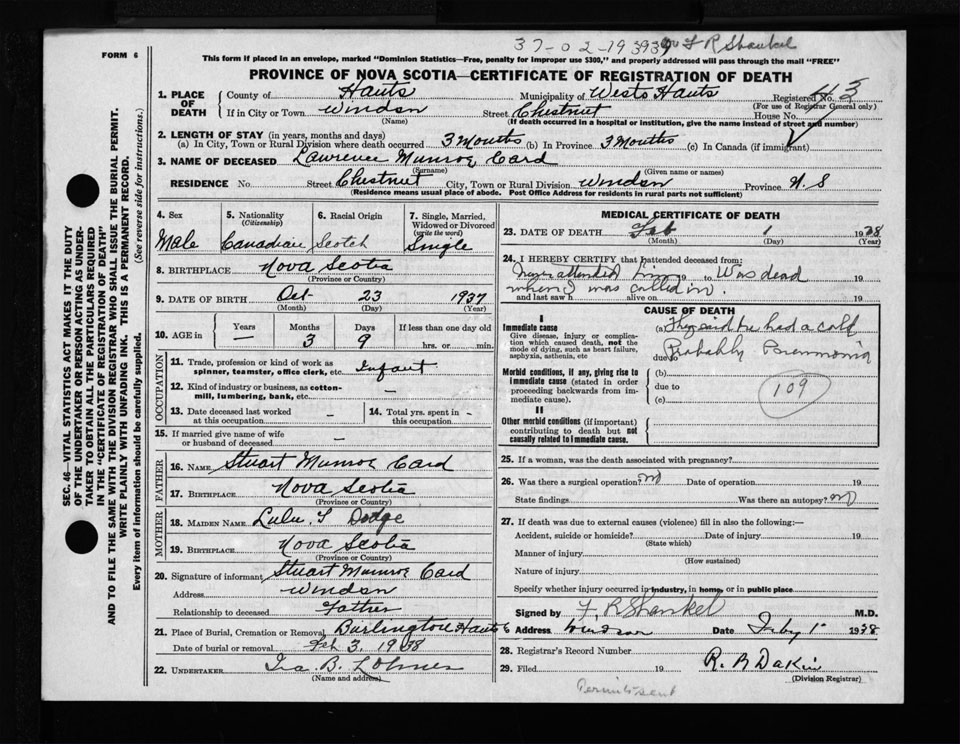 FORM 6
37-02-193939 F R Shankel
This form if placed in an envelope, marked "Dominion Statistics—Free, penalty for improper use $300," and properly addressed will pass through the mail "FREE"
PROVINCE OF NOVA SCOTIA—CERTIFICATE OF REGISTRATION OF DEATH
1. PLACE OF DEATH County of Hants Municipality of West Hants Registered No. 43
(For use of Registrar General only)
If in City or Town Windsor Street Chestnut House No.
(Name) (If death occurred in a hospital or institution, give the name instead of street and number)
2. LENGTH OF STAY (in years, months and days)
(a) In City, Town or Rural Division where death occurred 3 Months (b) In Province 3 Months (c) In Canada (if immigrant)
3. NAME OF DECEASED Lawrence Munroe Card
(Surname) (Given name or names)
RESIDENCE No. Street Chestnut City, Town or Rural Division Windsor Province N. S
(Residence means usual place of abode. Post Office Address for residents in rural parts not sufficient)
4. Sex 5. Nationality (Citizenship) 6. Racial Origin 7. Single, Married, Widowed or Divorced (write the word)
Male Canadian Scotch Single
8. BIRTHPLACE Nova Scotia
(Province or Country)
9. DATE OF BIRTH Oct 23 1937
(Month) (Day) (Year)
10. AGE in Years Months Days If less than one day old
— 3 9 hrs. or min.
OCCUPATION
11. Trade, profession or kind of work as spinner, teamster, office clerk, etc. Infant
12. Kind of industry or business, as cotton-mill, lumbering, bank, etc. —
13. Date deceased last worked at this occupation — 14. Total yrs. spent in this occupation -
15. If married give name of wife or husband of deceased —
FATHER
16. NAME Stuart Munroe Card
17. BIRTHPLACE Nova Scotia
(Province or Country)
MOTHER
18. MAIDEN NAME Lulu. T Dodge
19. BIRTHPLACE Nova Scotia
(Province or Country)
20. Signature of informant Stuart Munroe Card
Address Windsor
Relationship to deceased Father
21. Place of Burial, Cremation or Removal Burlington Hants Co
Date of burial or removal Feb 3. 1938
22. UNDERTAKER Ira B. Lohnes
(Name and address)
MEDICAL CERTIFICATE OF DEATH
23. DATE OF DEATH Feb 1 1938
(Month) (Day) (Year)
24. I HEREBY CERTIFY that I attended deceased from:
Never attended him 19 to Was dead 19
when I was called in.
and last saw h alive on 19
CAUSE OF DEATH
I
Immediate cause
Give disease, injury or complication which caused death, not the mode of dying, such as heart failure, asphyxia, asthenia, etc
(a) They said he had a cold
due to Probably Pneumonia
Morbid conditions, if any, giving rise to immediate cause (stated in order proceeding backwards from immediate cause).
(b)
due to
(c)
109
II
Other morbid conditions (if important) contributing to death but not causally related to immediate cause.
25. If a woman, was the death associated with pregnancy?
26. Was there a surgical operation? no Date of operation 19
State findings Was there an autopsy? no
27. If death was due to external causes (violence) fill in also the following:—
Accident, suicide or homicide? Date of injury 19
(State which)
Manner of injury
(How sustained)
Nature of injury
Specify whether injury occurred in industry, in home, or in public place
Signed by F. R Shankel M.D.
Address Windsor Date Feby 1 1938
28. Registrar's Record Number
29. Filed 19 R. B Dakin
(Division Registrar)
Permit sent
SEC. 46—VITAL STATISTICS ACT MAKES IT THE DUTY
OF THE UNDERTAKER OR PERSON ACTING AS UNDERTAKER
TO OBTAIN ALL THE PARTICULARS REQUIRED
IN THE "CERTIFICATE OF REGISTRATION OF DEATH"
AND TO FILE THE SAME WITH THE DIVISION REGISTRAR WHO SHALL ISSUE THE BURIAL PERMIT.
WRITE PLAINLY WITH UNFADING INK. THIS IS A PERMANENT RECORD.
Every item of information should be carefully supplied. (See reverse side for instructions.)